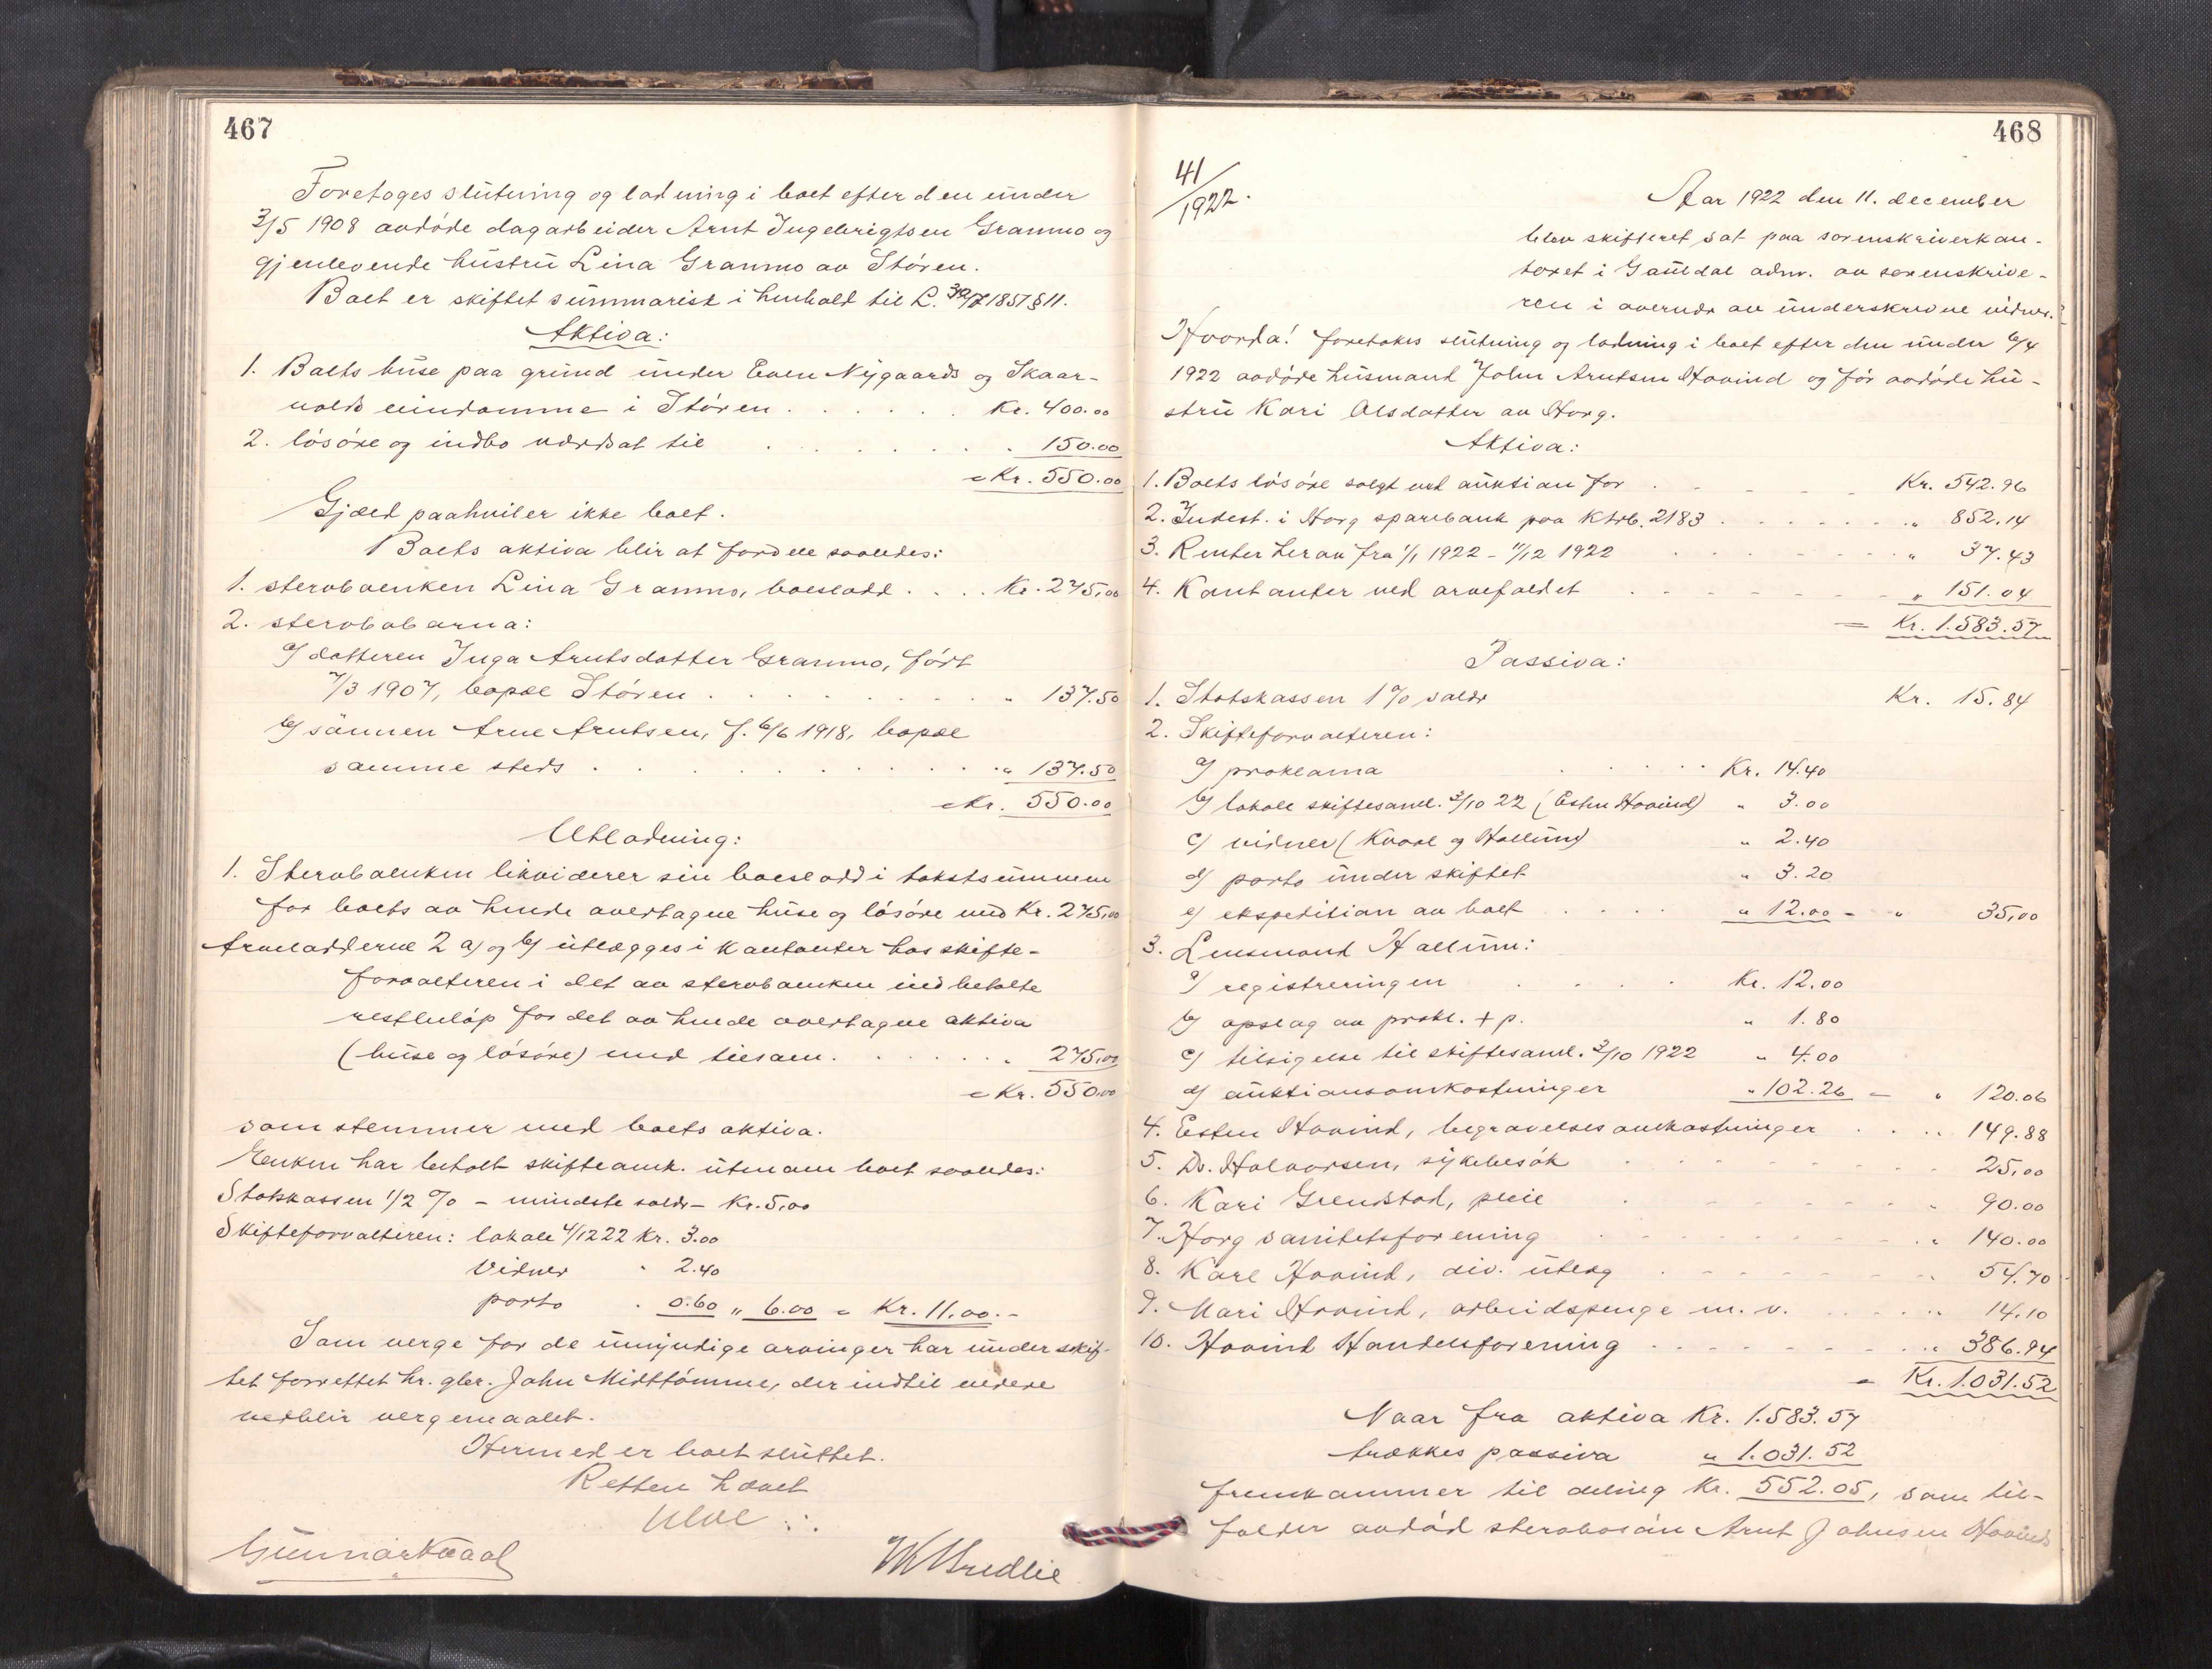 467
Foretoges slutning og lodning i boet efter den under
3/5 1908 avdøde dagarbeider Arnt Ingebrigtsen Granmo og
gjenlevende hustru Lina Granmo av Støren.
Boet er skiftet summarisk i henhold til L. 30/7 1851 § 11.
Aktiva:
1. Boets huse paa grund under Even Nygaards og Skaar-
volds eiendomme i Støren . . . . . . Kr. 400.00
2. løsøre og indbo værdsat til . . . . . . 150.00
= Kr. 550.00
Gjæld paahviler ikke boet.
Boets aktiva blir at fordele saaledes:
1. stervboenken Lina Granmo, boeslodd . . . . Kr. 275,00
2. stervbobarna:
a/ datteren Inga Arntsdatter Granmo, født
7/3 1907, bopæl Støren . . . . . . . . " 137.50
b/ sønnen Arne Arntsen, f. 6/6 1918, bopæl
samme steds . . . . . . . . . . . " 137.50
= Kr. 550.00
Utlodning:
1. Stervboenken likviderer sin boeslodd i takstsummen
for boets av hende overtagne huse og løsøre med Kr. 275,00
Arvelodderne 2 a/ og b/ utlægges i kontanter hos skifte-
forvalteren i det av stervboenken indbetalte
restbeløp for det av hende overtagne aktiva
(huse og løsøre) med tilsam. . . . . . . " 275,00
= Kr. 550,00
som stemmer med boets aktiva.
Enken har betalt skifteomk. utenom boet saaledes:
Statskassen 1/2 % - mindste saldo - Kr. 5,00
Skifteforvalteren: lokale 4/12 22 Kr. 3.00
Vidner " 2.40
porto " 0.60 " 6.00 = Kr. 11.00. -
Som verge for de umyndige arvinger har under skif-
tet forrettet hr. gbr. John Midttømme, der indtil videre
vedblir vergemaalet.
Hermed er boet sluttet.
Retten hævet
Gunnar Kvaal
468
41/1922.
Aar 1922 den 11. december
blev skifteret sat paa sorenskriverkon-
toret i Gauldal adm. av sorenskrive-
ren i overvær av underskrevne vidner.
Hvorda! foretokes slutning og lodning i boet efter den under 6/4
1922 avdøde husmand John Arntsen Hovind og før avdøde hu-
stru Kari Olsdatter av Horg.
Aktiva:
1. Boets løsøre solgt ved auktion for . . . . . Kr. 542.96
2. Indest. i Horg sparebank paa Ktrb. 2183 . . . . . . . " 852.14
3. Renter herav fra 1/1 1922 - 11/12 1922 . . . . . . . " 37.43
4. Kontanter ved arvefaldet . . . . . . . " 151.04
= Kr. 1.583.57
Passiva:
1. Statskassen 1 % saldo Kr. 15.84
2. Skifteforvalteren:
a/ proklama . . . . . Kr. 14.40
b/ lokale skiftesaml. 3/10 22 (Esten Hovind) " 3.00
c/ vidner (Kvaal og Hallum) " 2.40
d/ porto under skiftet " 3.20
e/ ekspedition av boet . . . . " 12.00 = " 35,00
3. Lensmand Hallum:
a/ registreringen . . . . Kr. 12.00
b/ opslag av prokl. + p. " 1.80
c/ tilsigelse til skiftesaml. 3/10 1922 " 4.00
d/ auktionsomkostninger " 102.26 = " 120.06
4. Esten Hovind, begravelsesomkostninger . . . . " 149.88
5. Dr. Halvorsen, sykebesøk . . . . . . . . 25,00
6. Kari Grendstad, pleie . . . . . . . . " 90.00
7. Horg sanitetsforening . . . . . . . . " 140.00
8. Karl Hovind, div. utlæg . . . . . . . 54.70
9. Mari Hovind, arbeidspenge m. v. . . . . . " 14.10
10. Hovind Handelsforening . . . . . . . . " 386.94
= Kr. 1.031.52
Naar fra aktiva Kr. 1.583.57
trækkes passiva " 1.031.52
fremkommer til deling Kr. 552.05, som til-
falder avdød stervbosøn Arnt Johnsen Hovinds